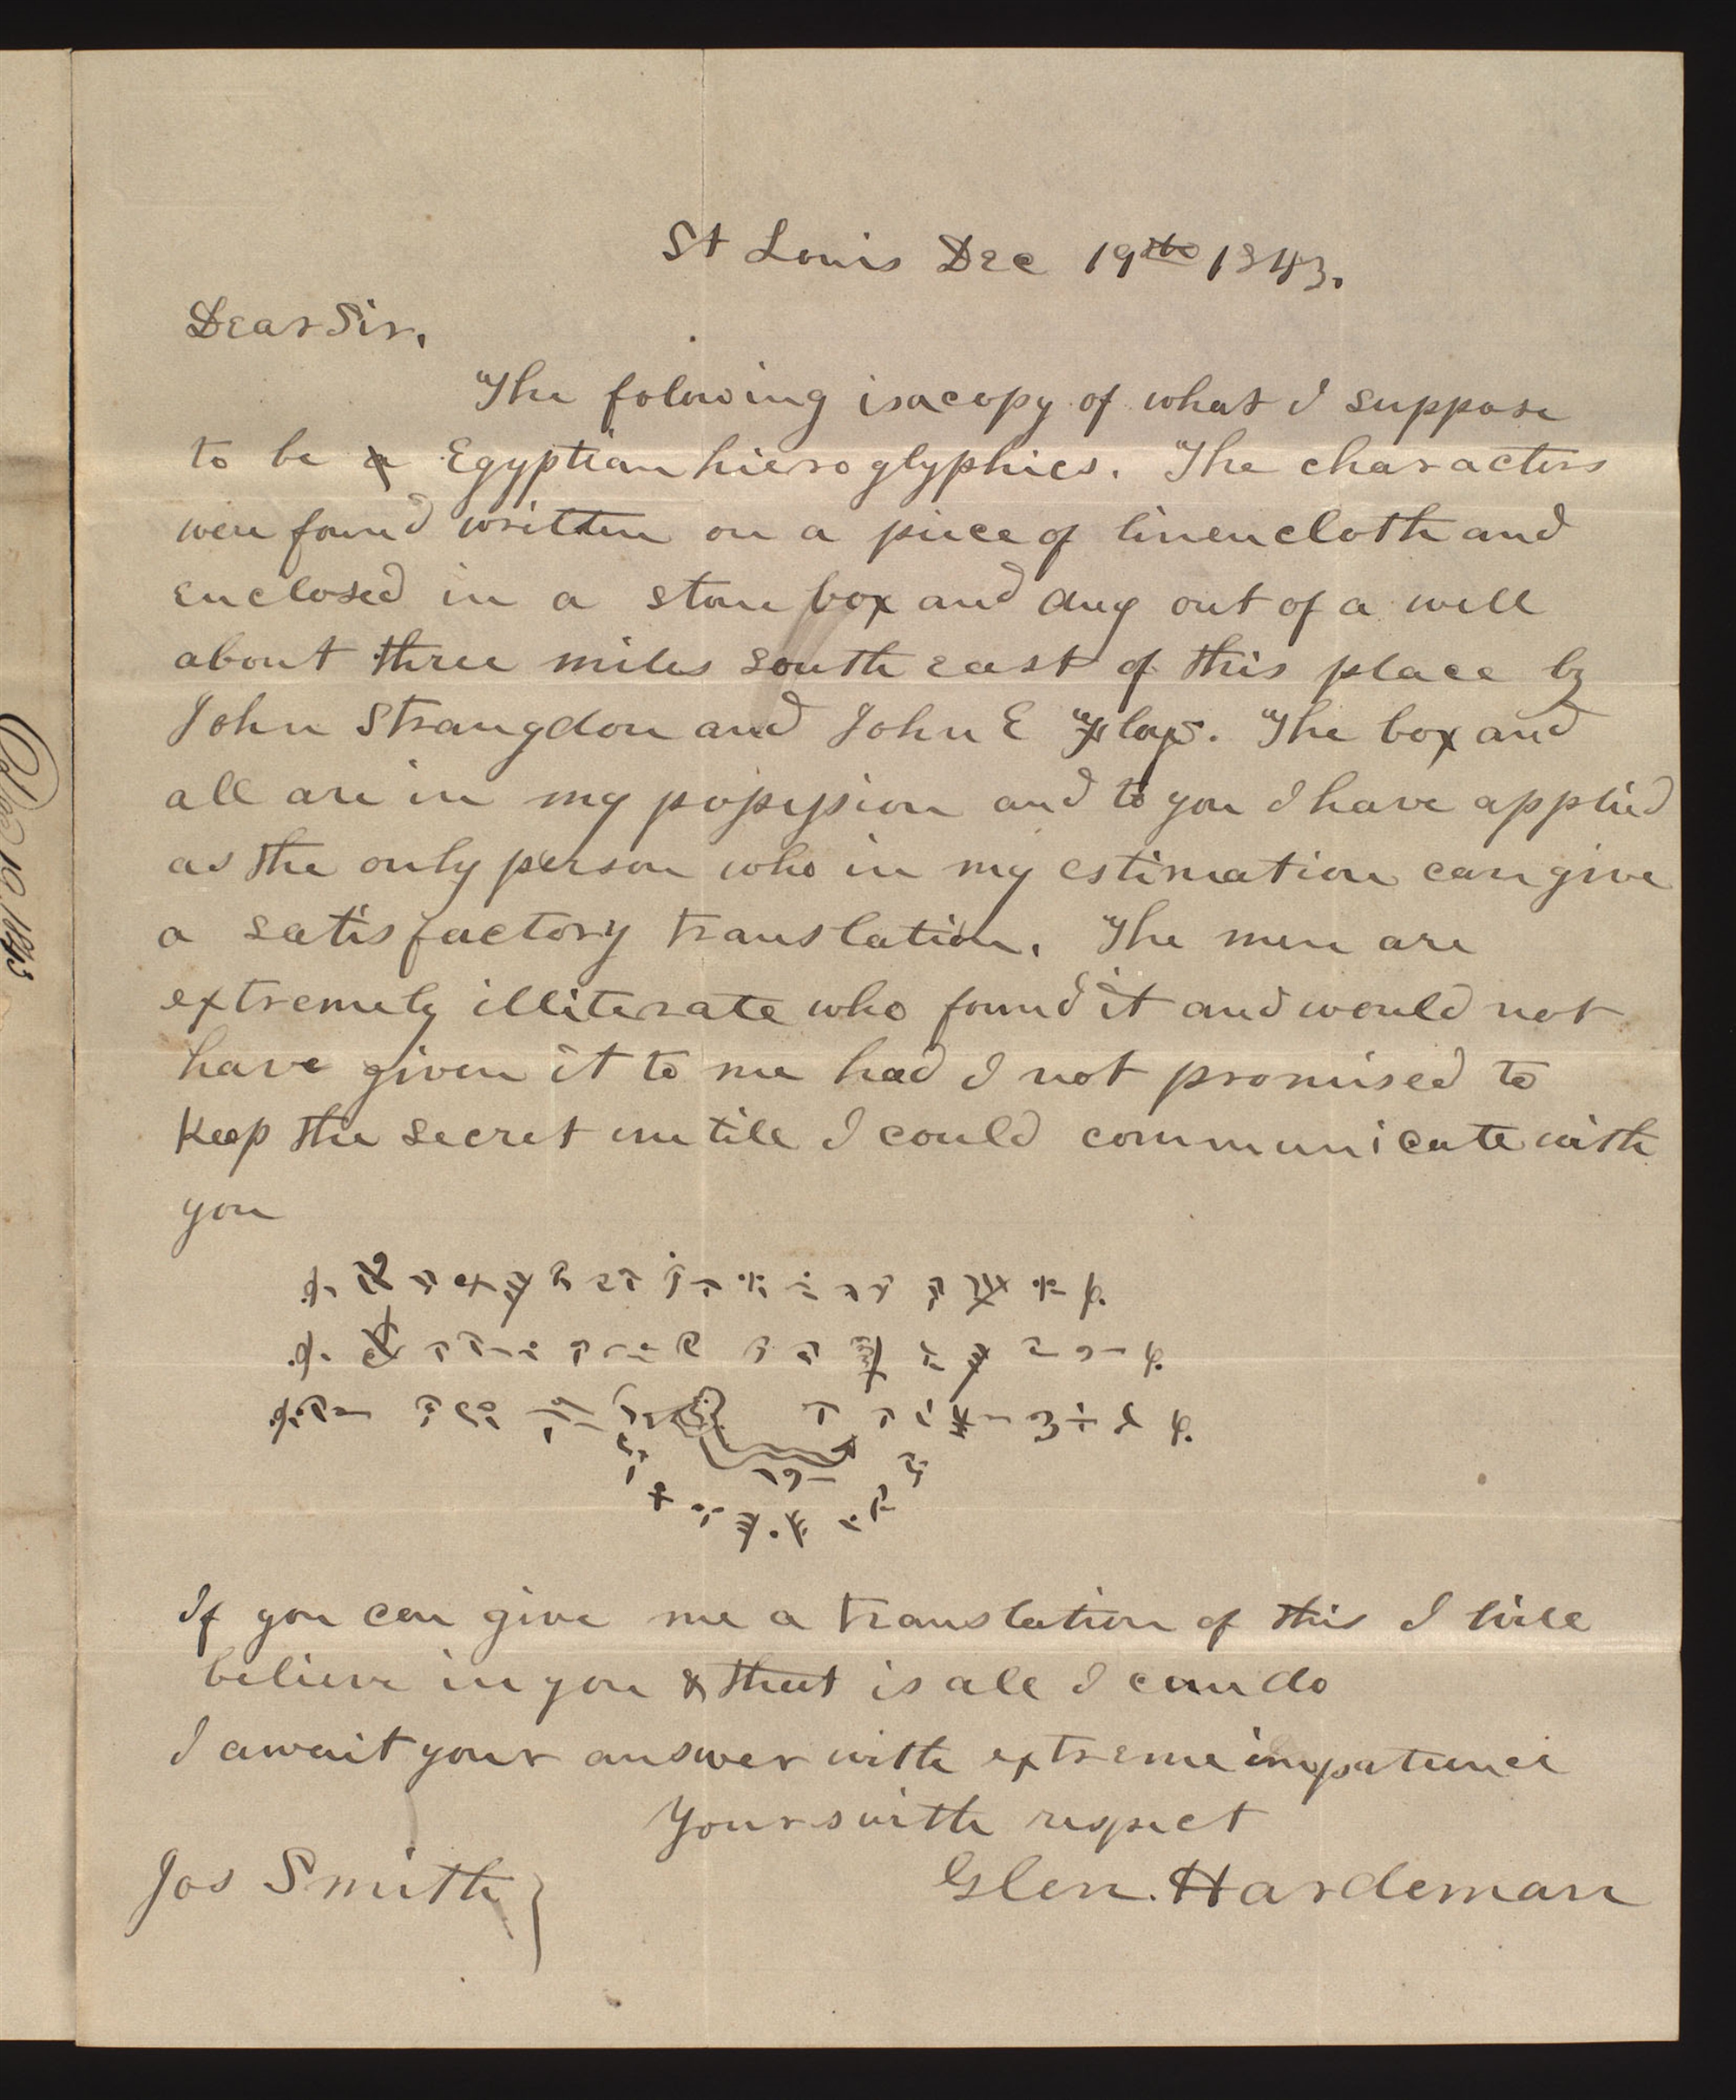 St Louis Dec 19th 1843.
Dear Sir,
The folowing is a copy of what I suppose
to be a Egyptian hieroglyphics. The characters
were found written on a piece of linen cloth and
enclosed in a stone box and dug out of a well
about three miles south east of this place by
John Strangdon and John E The box and
all are in my possession and to you I have applied
as the only person who in my estimation can give
a satisfactory translation. The men are
extremely illiterate who found it and would not
have given it to me had I not promised to
keep the secret untill I could communicate with
you
If you can give me a translation of this I will
believe in you & that is all I can do
I await your answer with extreme impatience
Yours with respect
Jos Smith} Glen. Hardeman